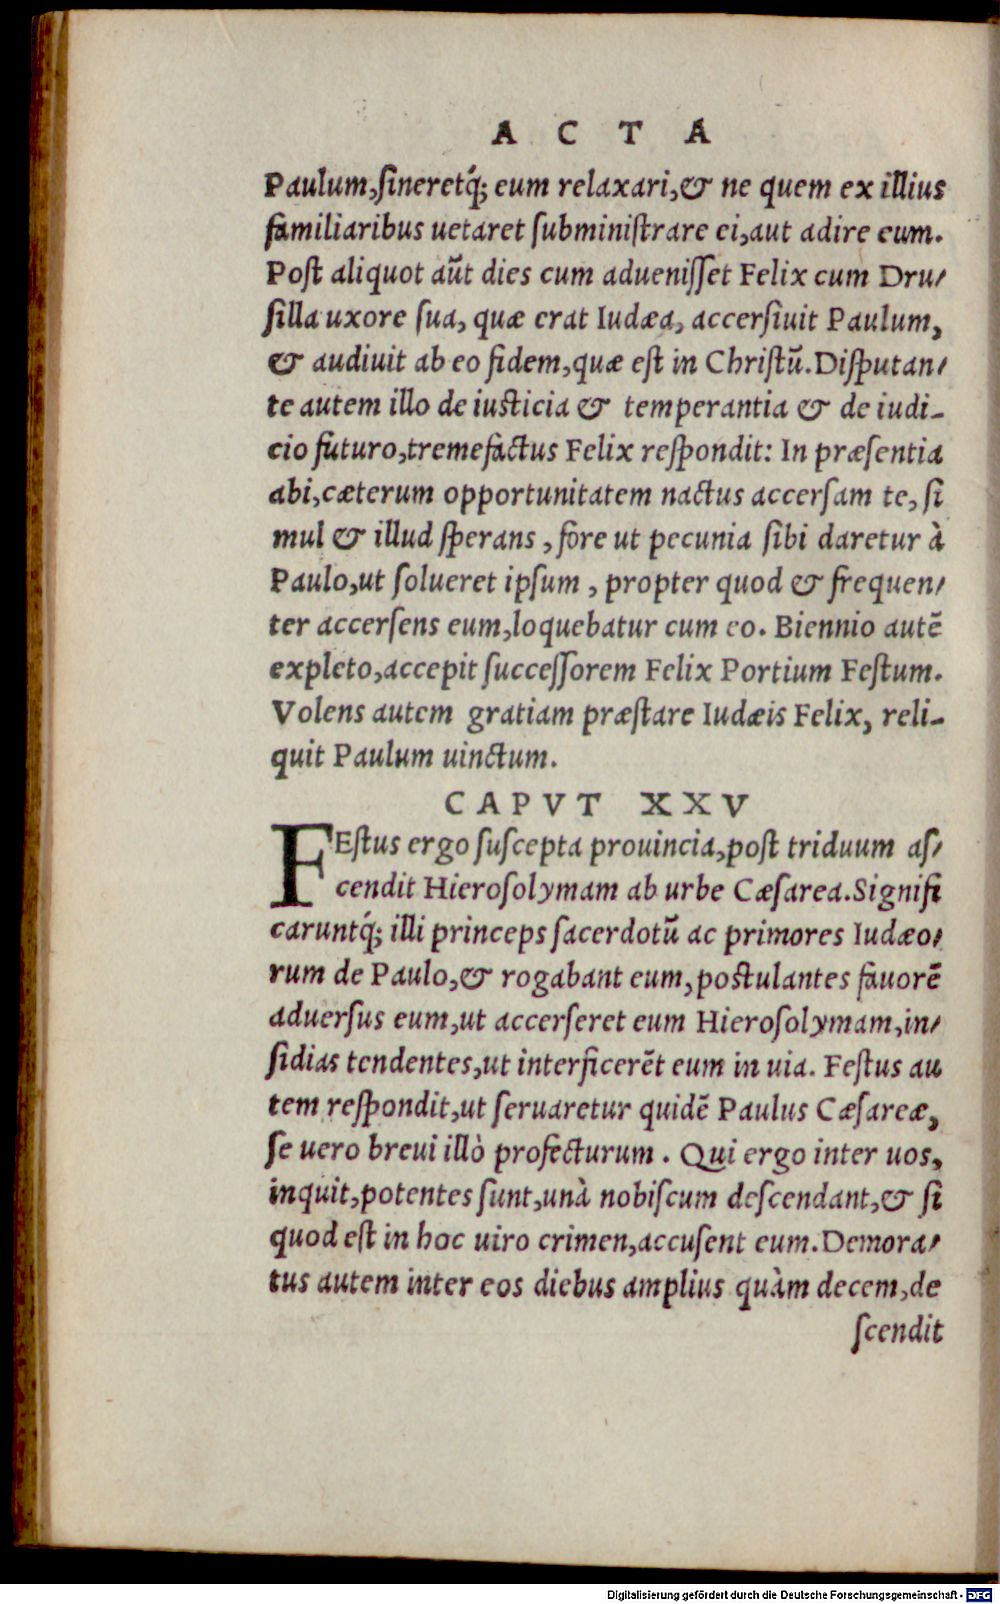 A C T A
Paulum,ſineretq́; eum relaxari,& ne quem ex illius
familiaribus uetaret ſubminiſtrare ei,aut adire eum.
Poſt aliquot aūt dies cum adueniſſet Felix cum Dru/
ſilla uxore ſua, quæ erat Iudæa, accerſiuit Paulum,
& audiuit ab eo fidem,quæ eſt in Chriſtū.Diſputan/
te autem illo de iusticia & temperantia & de iudi-
cio futuro,tremefactus Felix reſpondit: In præſentia
abi,cæterum opportunitatem nactus accerſam te, ſi
mul & illud ſperans , fore ut pecunia ſibi daretur à
Paulo,ut ſolueret ipſum , propter quod & frequen/
ter accerſens eum,loquebatur cum eo. Biennio autē
expleto,accepit ſucceſſorem Felix Portium Feſtum.
Volens autem gratiam præſtare Iudæis Felix, reli-
quit Paulum uinctum.
C A P V T X X V
FEſtus ergo ſuſcepta prouincia,poſt triduum aſ/
cendit Hieroſolymam ab urbe Cæſarea.Signifi
caruntq́; illi princeps ſacerdotū ac primores Iudæo/
rum de Paulo,& rogabant eum,postulantes fauorē
aduerſus eum,ut accerſeret eum Hieroſolymam,in/
ſidias tendentes,ut interficerēt eum in uia. Feſtus au
tem reſpondit,ut ſeruaretur quidē Paulus Cæſareæ,
ſe uero breui illò profecturum . Qui ergo inter uos,
inquit,potentes ſunt,unà nobiſcum deſcendant,& ſi
quod eſt in hoc uiro crimen,accuſent eum.Demora/
tus autem inter eos diebus amplius quàm decem,de
ſcendit
Digitalisierung gefördert durch die Deutsche Forschungsgemeinschaft - DFG